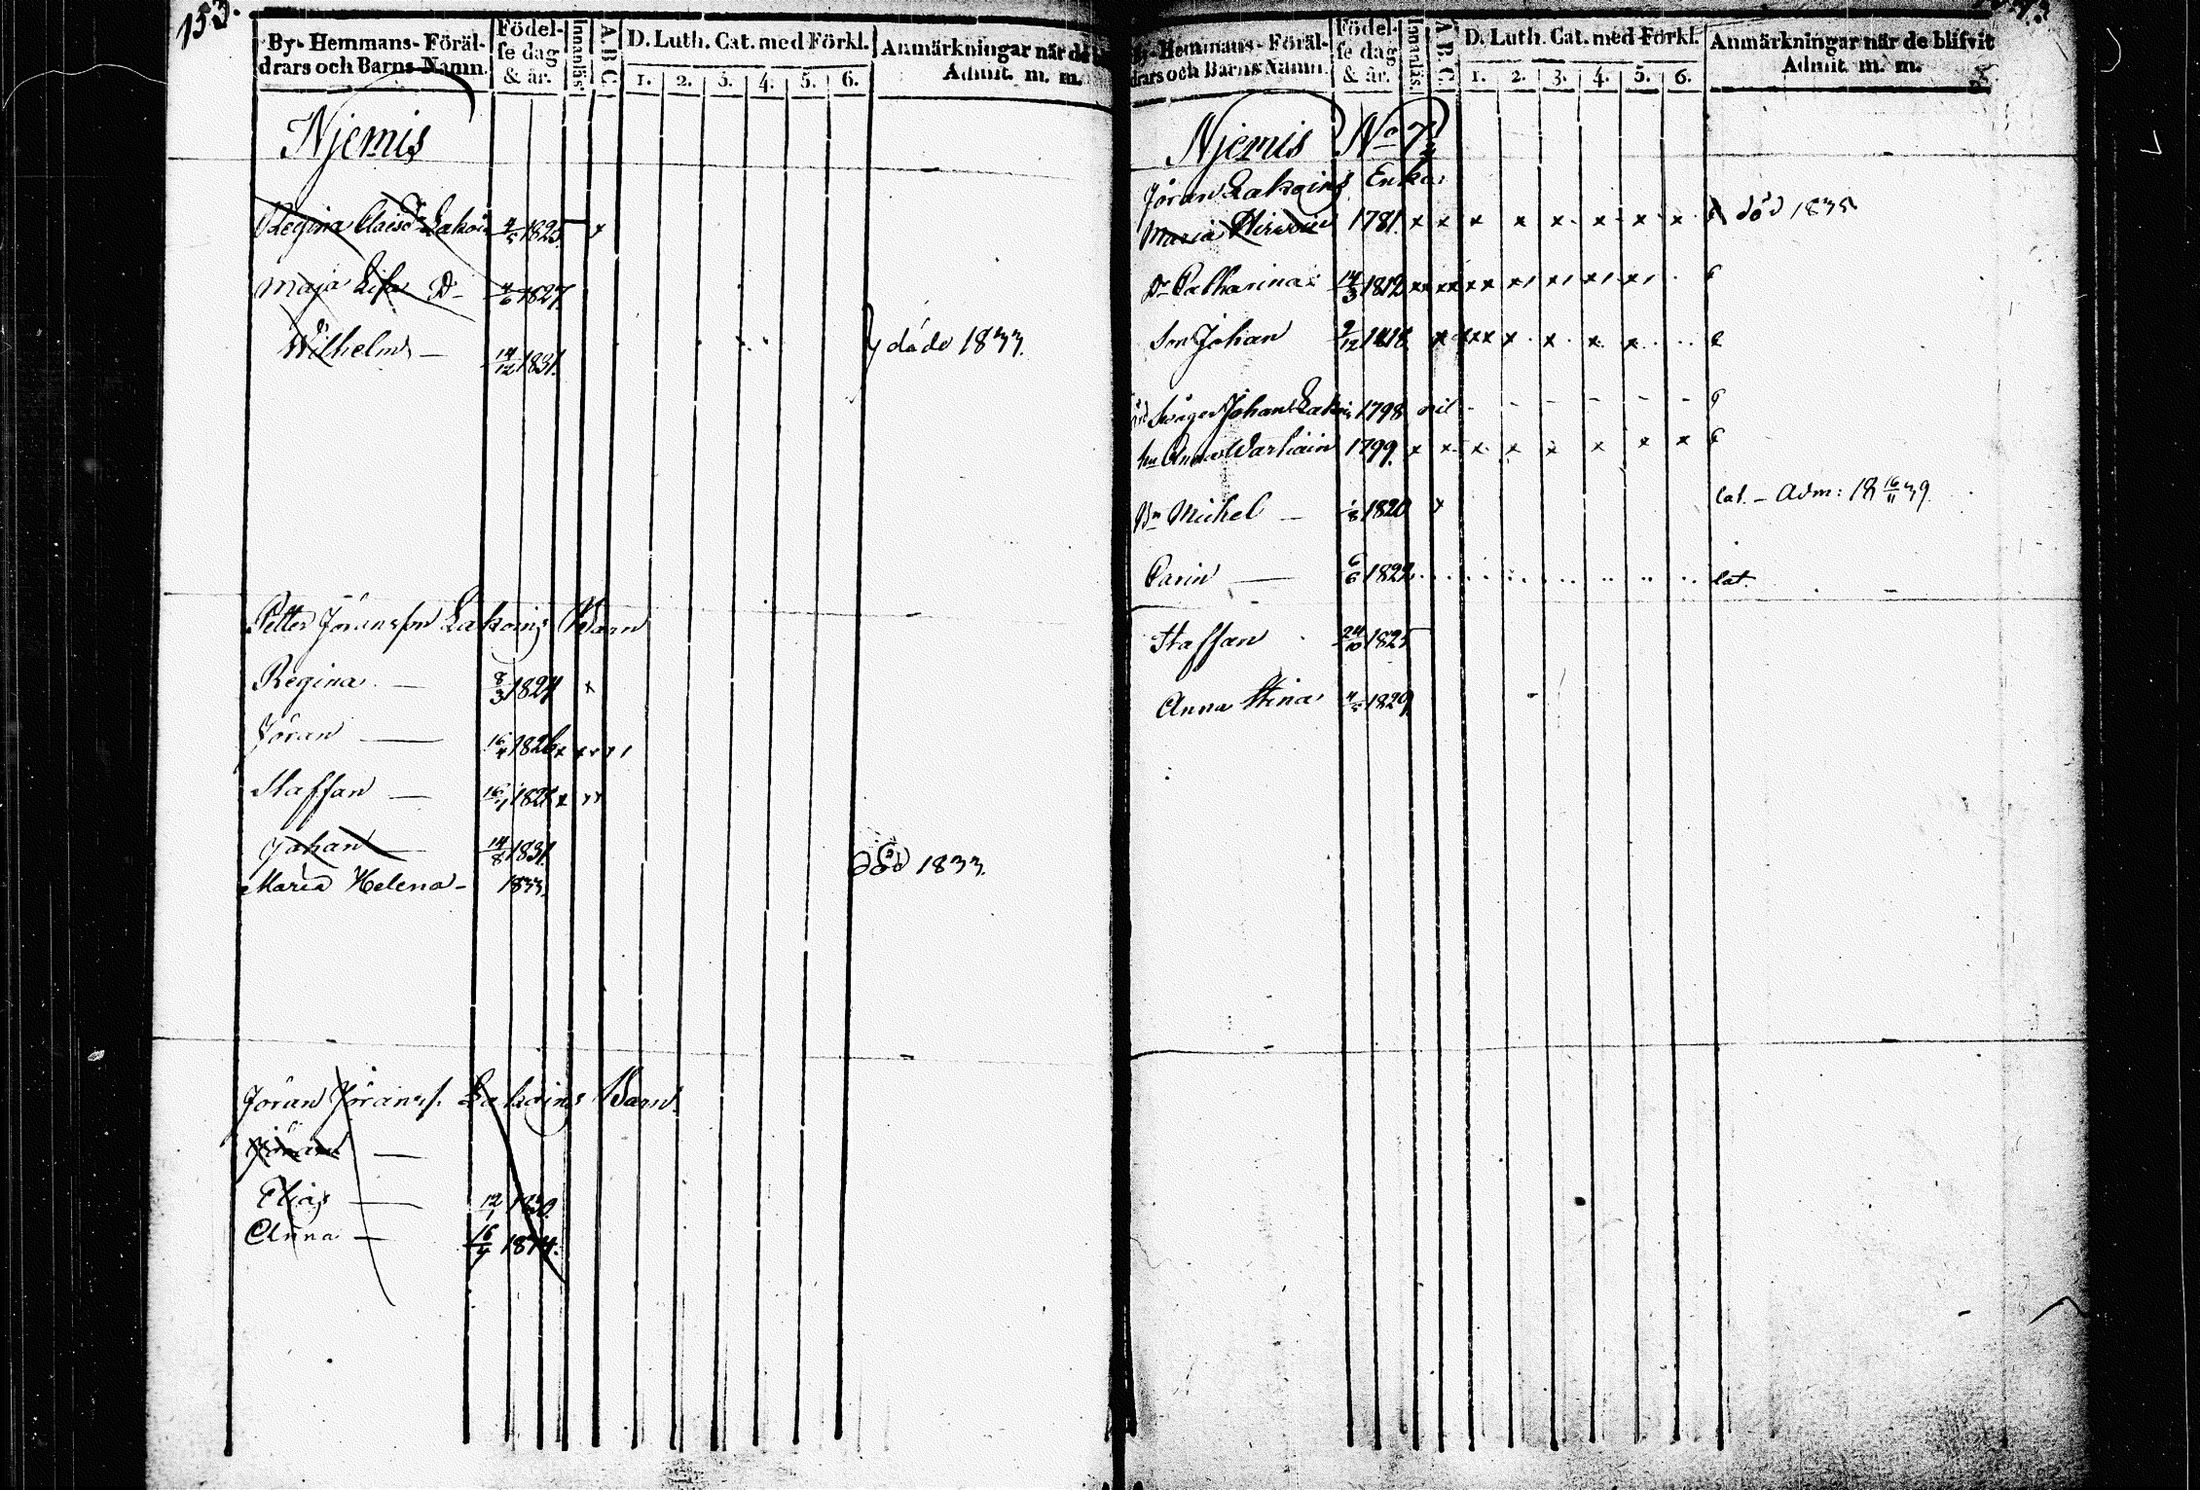 153.
By- Hemmans- Föräl-
drars och Barns Namn.
Födel-
se dag
& år.
Innanläs.
A.B.C.
D. Luth. Cat. med Förkl.
1. 2. 3. 4. 5. 6.
Anmärkningar när de
Admit. m. m.
Njemis
Regina Claësd. Lakoin 4/5 1825. x
Maja Lisa D- 4/6 1827.
Wilhelm — 14/12 1831.
döde 1833.
Petter Jöransson Lakoins Barn
Regina — 8/3 1824 x
Jöran — 16/4 1826
Staffan — 16/1 182
Johan — 14/8 1831. död 1833.
Maria Helena - 1833.
Jöran Jöranss. Lakoins Barn
Jöran —
Elias — 12/1 1830.
Anna — 16/4
By- Hemmans- Föräl-
drars och Barns Namn.
Födel-
se dag
& år.
Innanläs.
A.B.C.
D. Luth. Cat. med Förkl.
1. 2. 3. 4. 5. 6.
Anmärkningar när de blifvit
Admit. m. m.
Njemis No 7
Jöran Lakoins Enka
Maria 1781. x x x x x x x x död 1835
Dr Catharina 14/3 1812
Son Johan 9/12 1818
Swåger Johan Lakoin 1798 nil - - - - - -
hu Anna 1799. x x x x x x x x
Bn Michel — 1/8 1820 x Cat. - Adm: 18 16/11 39.
Carin — 6/6 1822 Cat.
Staffan 24/10 1825
Anna Stina 4/5 1829